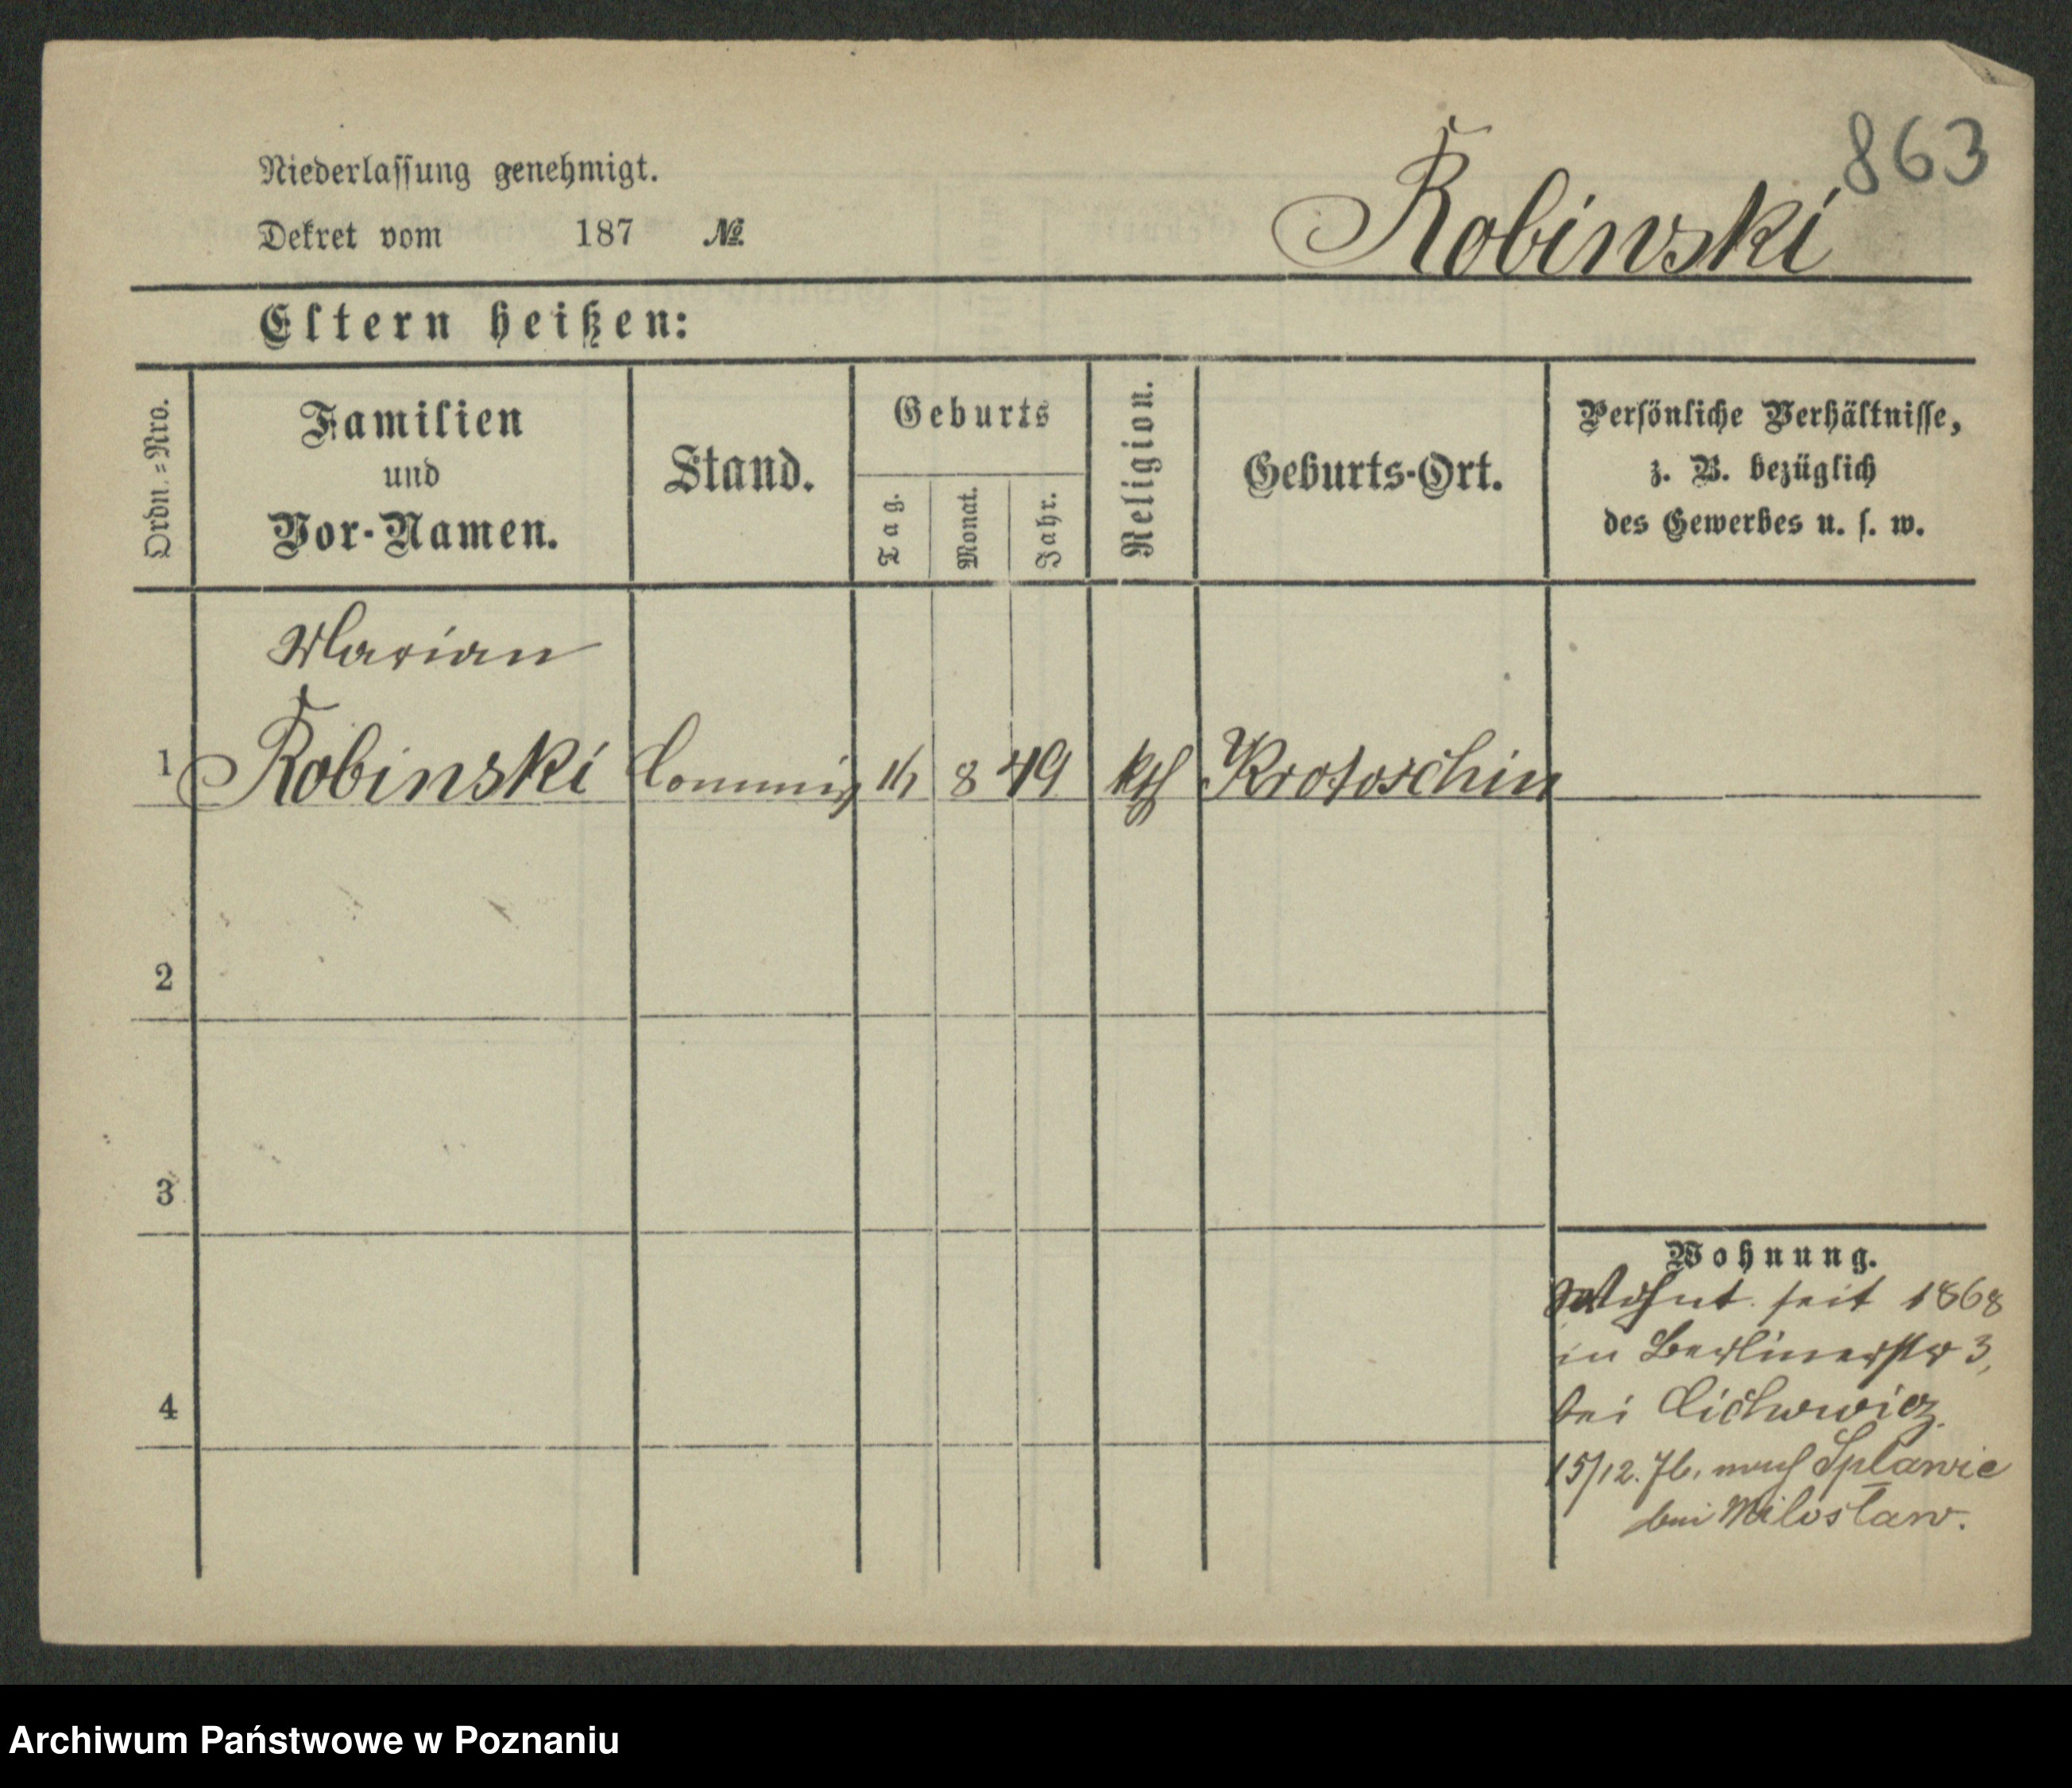 863
Niederlassung genehmigt.
Robinski
Dekret vom 187 №
Eltern heißen:
Ordn.=Nro.
Familien
und
Vor-Namen.
Stand.
Geburts
Tag.
Monat.
Jahr.
Religion.
Geburts-Ort.
Persönliche Verhältnisse,
z. B. bezüglich
des Gewerbes u. s. w.
Marian
1 Robinski Commis 16 8 49 kth Krotoschin
2
3
4
Wohnung.
Wohnt seit 1868
in Berlinerstr 3,
bei Cichowicz.
15/12. 76. nach Spławie
bei Miłosław.
Archiwum Państwowe w Poznaniu